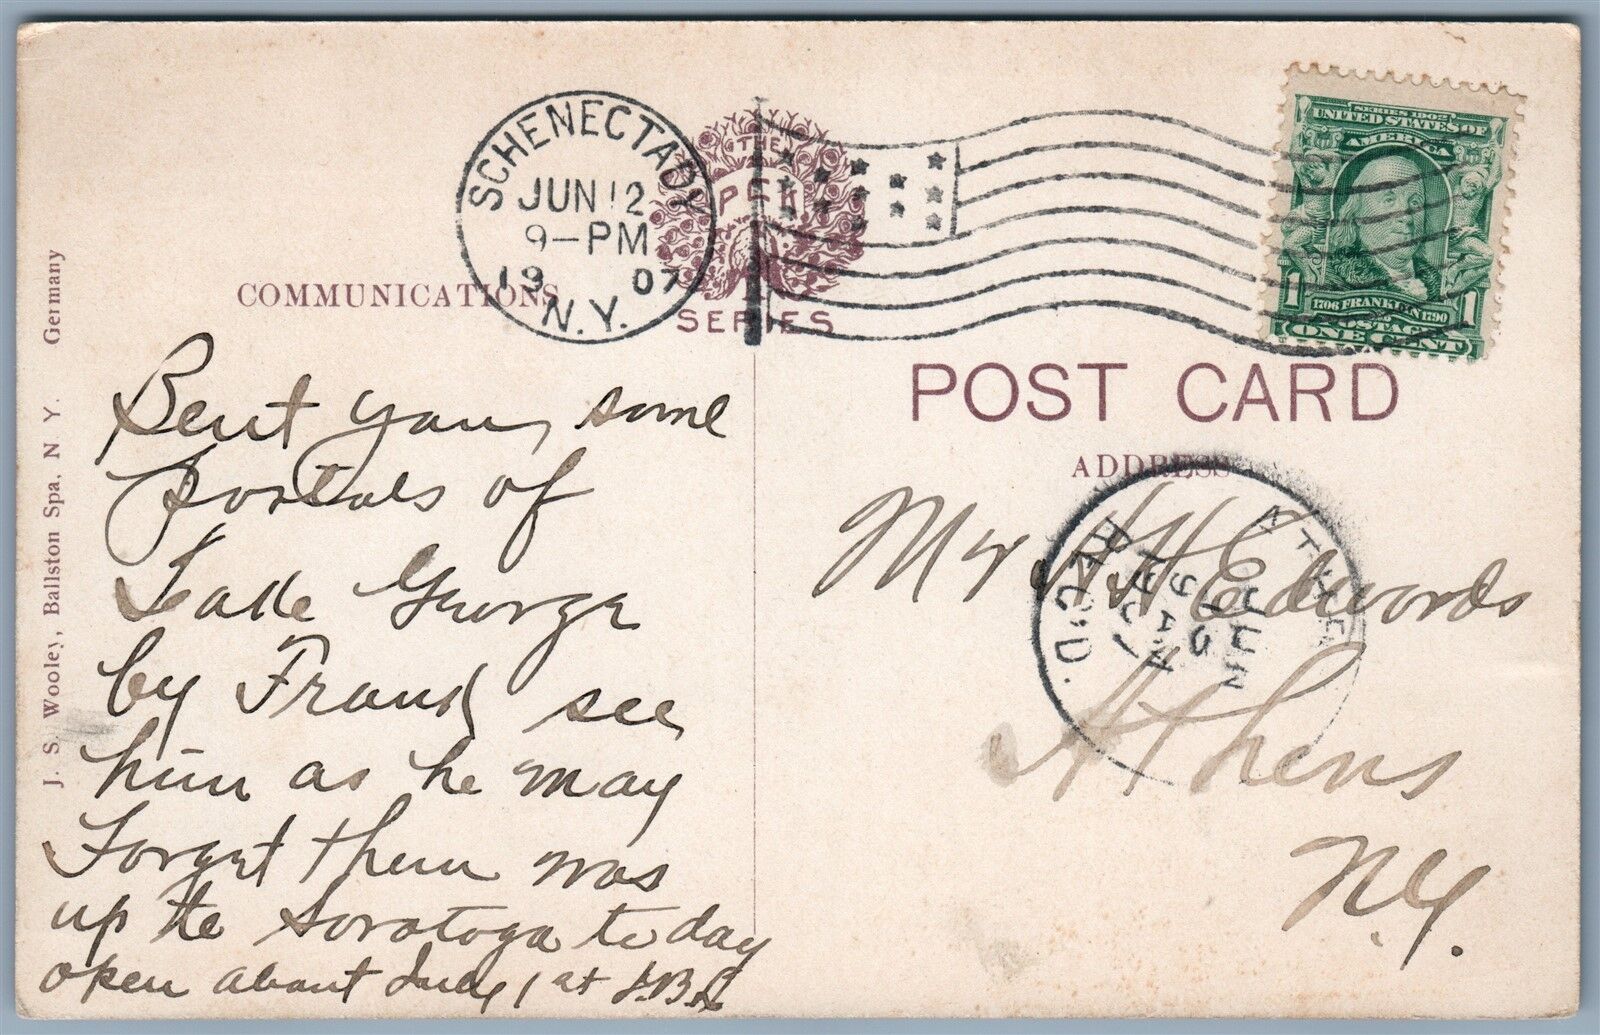 SCHENECTADY
JUN 12
9-PM
1907
N.Y.
THE
PEN
SERIES
SERIES 1902
UNITED STATES OF
AMERICA
1706 FRANKLIN 1790
POSTAGE
1 ONE CENT 1
COMMUNICATIONS
POST CARD
ADDRESS
J. S. Wooley, Ballston Spa, N Y. Germany
Sent you some
postals of
Lake George
by Frank see
him as he may
Forget them was
up to Soratoga to day
open about July 1 at
Mr Edwords
Athens
N.Y.
ATHENS
JUN
REC'D.